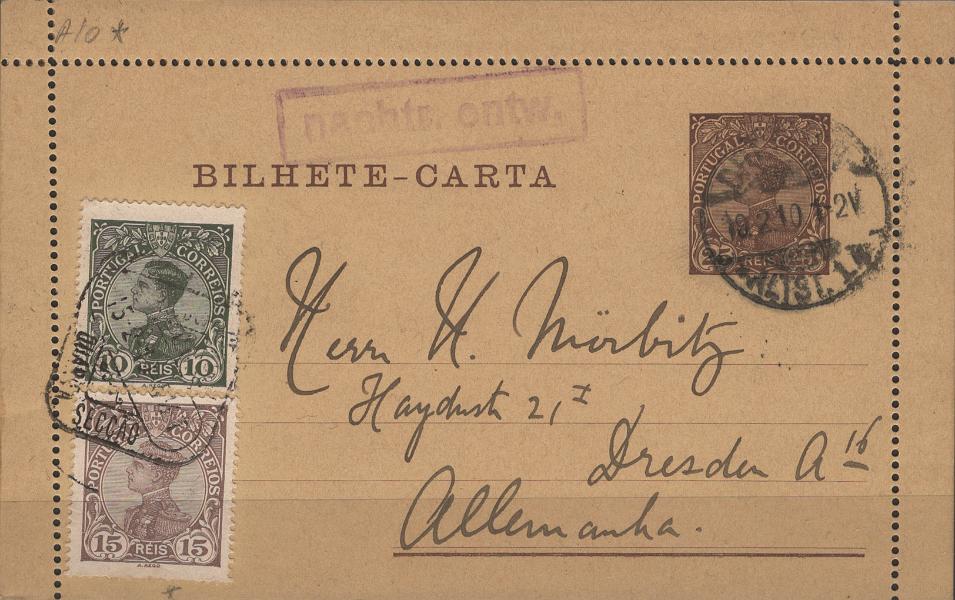 A10 *
nachtr. entw.
BILHETE-CARTA
PORTUGAL CORREIOS
25 REIS 25
10.2.10 1-2V
PORTUGAL CORREIOS
10 RÉIS 10
QUARTA
SECCÃO
PORTUGAL CORREIOS
15 RÉIS 15
Herrn H. Mörbitz
Haydnstr 21, I
Dresden A 16
Allemanha.